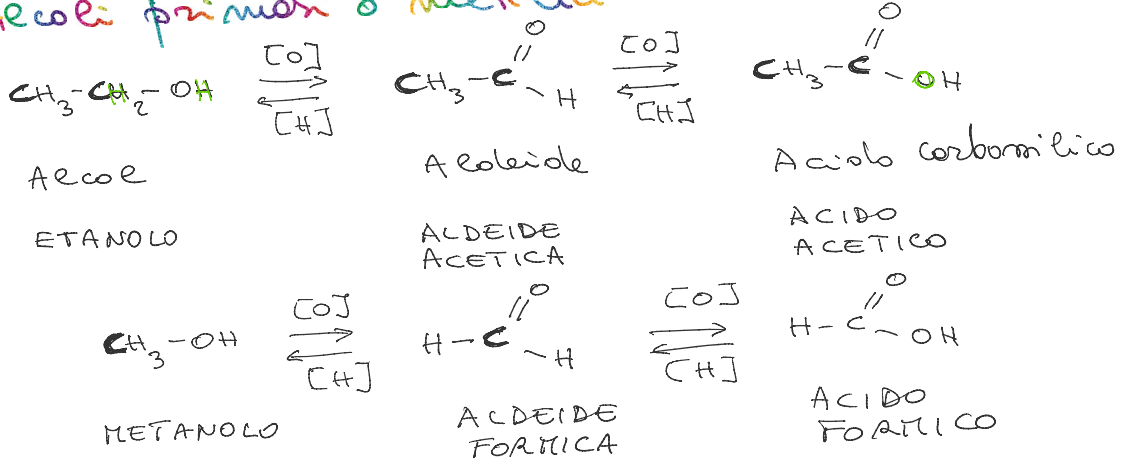 [O] [O]
CH3-CH2-OH ⇌ CH3-C=O-H ⇌ CH3-C=O-OH
[H] [H]
Alcol Aldeide Acido carbossilico
ETANOLO ALDEIDE ACETICA ACIDO ACETICO
[O] [O]
CH3-OH ⇌ H-C=O-H ⇌ H-C=O-OH
[H] [H]
METANOLO ALDEIDE FORMICA ACIDO FORMICO